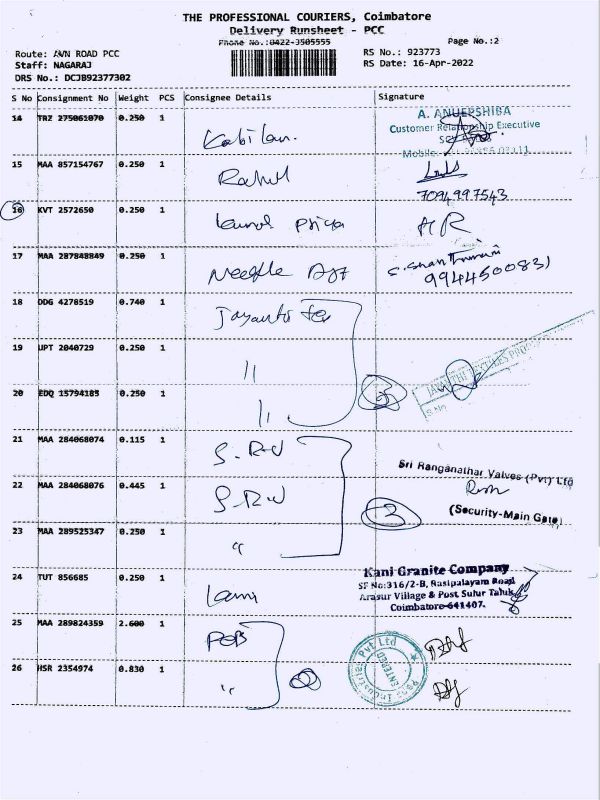 THE PROFESSIONAL COURIERS, Coimbatore
Delivery Runsheet - PCC
Phone No.:0422-3505555
Page No.:2
Route: AVN ROAD PCC
Staff: NAGARAJ
DRS No.: DCJB92377302
RS No.: 923773
RS Date: 16-Apr-2022
S No Consignment No Weight PCS Consignee Details Signature
14 TRZ 275061070 0.250 1 Kabilan.
A. ANUEPSHIBA
Customer Relationship Executive
Mobile:
15 MAA 857154767 0.250 1 Rahul
7094997543
16 KVT 2572650 0.250 1 Priya HR
17 MAA 287848849 0.250 1 Needle
9944500831
18 DDG 4278519 0.740 1 Jayanti Tex
19 UPT 2040729 0.250 1 "
20 EDQ 15794183 0.250 1 " 3
JAYANTHI TEXTILES
S.No
21 MAA 284068074 0.115 1 S.R.V
22 MAA 284068076 0.445 1 S.R.V
Sri Ranganathar Valves (Pvt) Ltd
(Security-Main Gate)
3
23 MAA 289525347 0.250 1 "
24 TUT 856685 0.250 1
Kani Granite Company
SF No:316/2-B, Rasipalayam Road
Arasur Village & Post Sulur Taluk
Coimbatore-641407.
25 MAA 289824359 2.600 1
26 HSR 2354974 0.830 1 " 2
Pvt Ltd
ENTERED